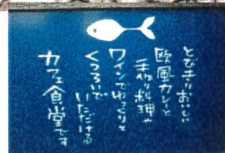 とびきりおいしい
欧風カレーと
手作り料理や
ワインでゆっくりと
くつろいで
いただける
カフェ食堂です